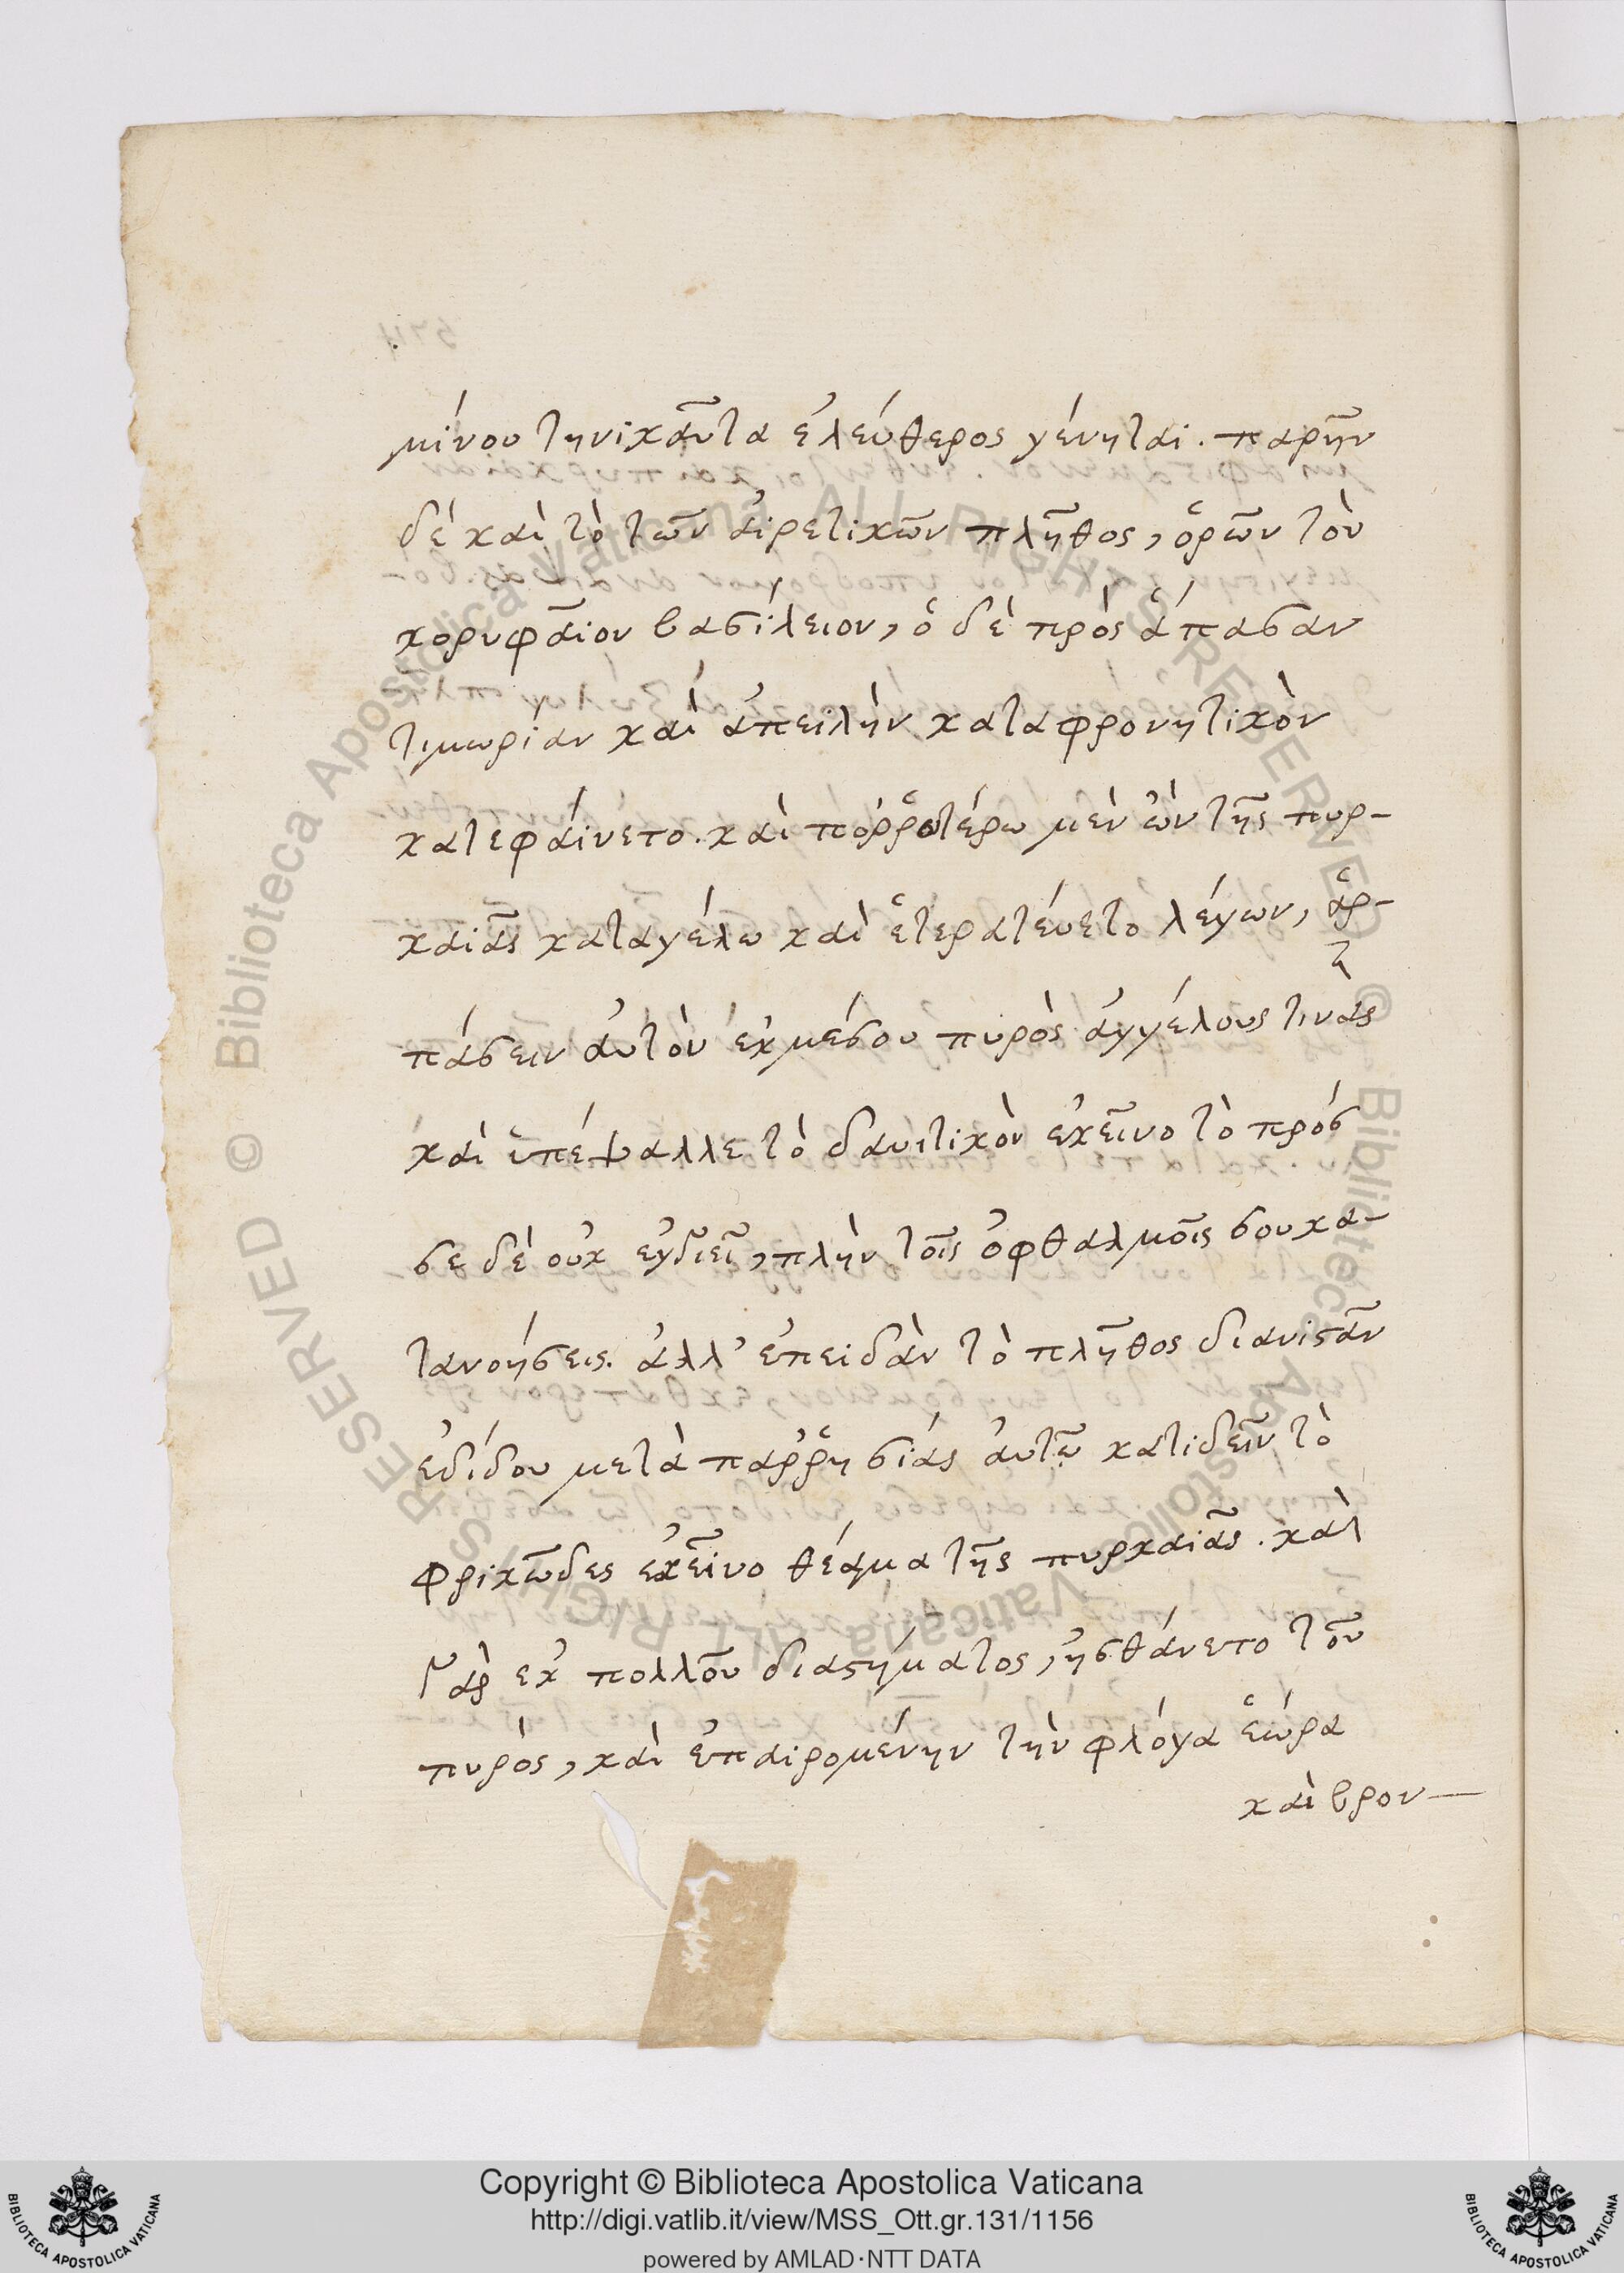 μίνου τηνικαῦτα ἐλεύθερος γένηται. παρῆν
δὲ καὶ τὸ τῶν αἱρετικῶν πλῆθος, ὁρῶν τὸν
κορυφαῖον βασίλειον, ὁ δὲ πρὸς ἅπασαν
τιμωρίαν καὶ ἀπειλὴν καταφρονητικὸν
κατεφαίνετο. καὶ πόῤῥοτέρω μὲν ὢν τῆς πυρ-
καιᾶς καταγέλω καὶ ἑτερατεύετο λέγων, ἁρ-
πάσειν αὐτὸν ἐκ μέσου πυρὸς ἀγγέλους τινὰς
καὶ ὑπέψαλλε τὸ δαυιτικὸν ἐκεῖνο τὸ πρός
σε δὲ οὐκ ἐγγιεῖ, πλὴν τοῖς ὀφθαλμοῖς σου κα-
τανοήσεις. ἀλλ' ἐπειδὰν τὸ πλῆθος διανιστᾶν
ἐδίδου μετὰ παῤῥησίας αὐτῷ κατιδεῖν τὸ
φρικῶδες ἐκεῖνο θέαμα τῆς πυρκαιᾶς. καὶ
γὰρ ἐκ πολλοῦ διαστήματος, ᾐσθάνετο τοῦ
πυρὸς, καὶ ἐπαιρομένην τὴν φλόγα ἑώρα
καὶ βρον-
Copyright © Biblioteca Apostolica Vaticana
http://digi.vatlib.it/view/MSS_Ott.gr.131/1156
powered by AMLAD·NTT DATA
BIBLIOTECA APOSTOLICA VATICANA
BIBLIOTECA APOSTOLICA VATICANA
© Biblioteca Apostolica Vaticana ALL RIGHTS RESERVED
© Biblioteca Apostolica Vaticana ALL RIGHTS RESERVED